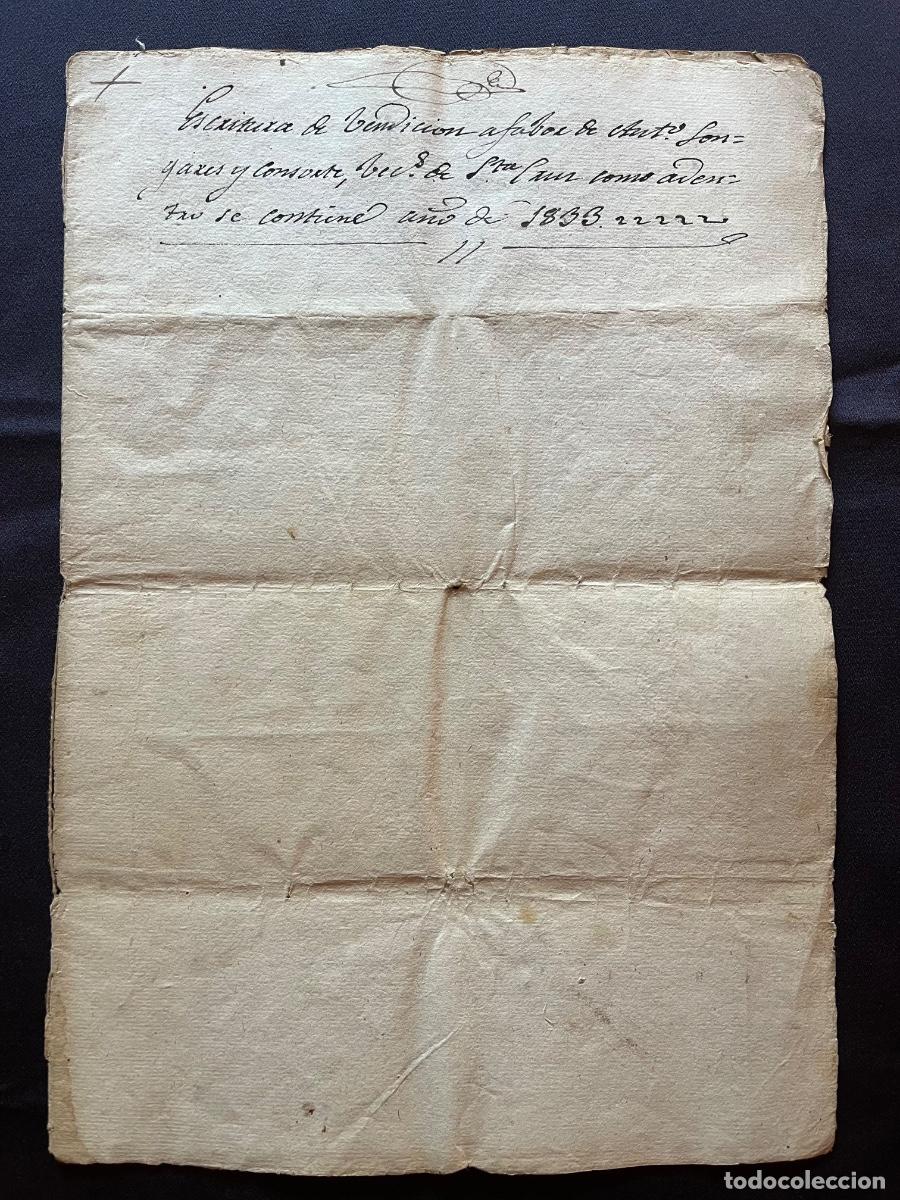 Escritura de Vendicion a fabor de Ant.º Lon-
gares y Consorte, Vec.s de S.ta Cruz como aden-
tro se contiene año de 1833.
todocoleccion